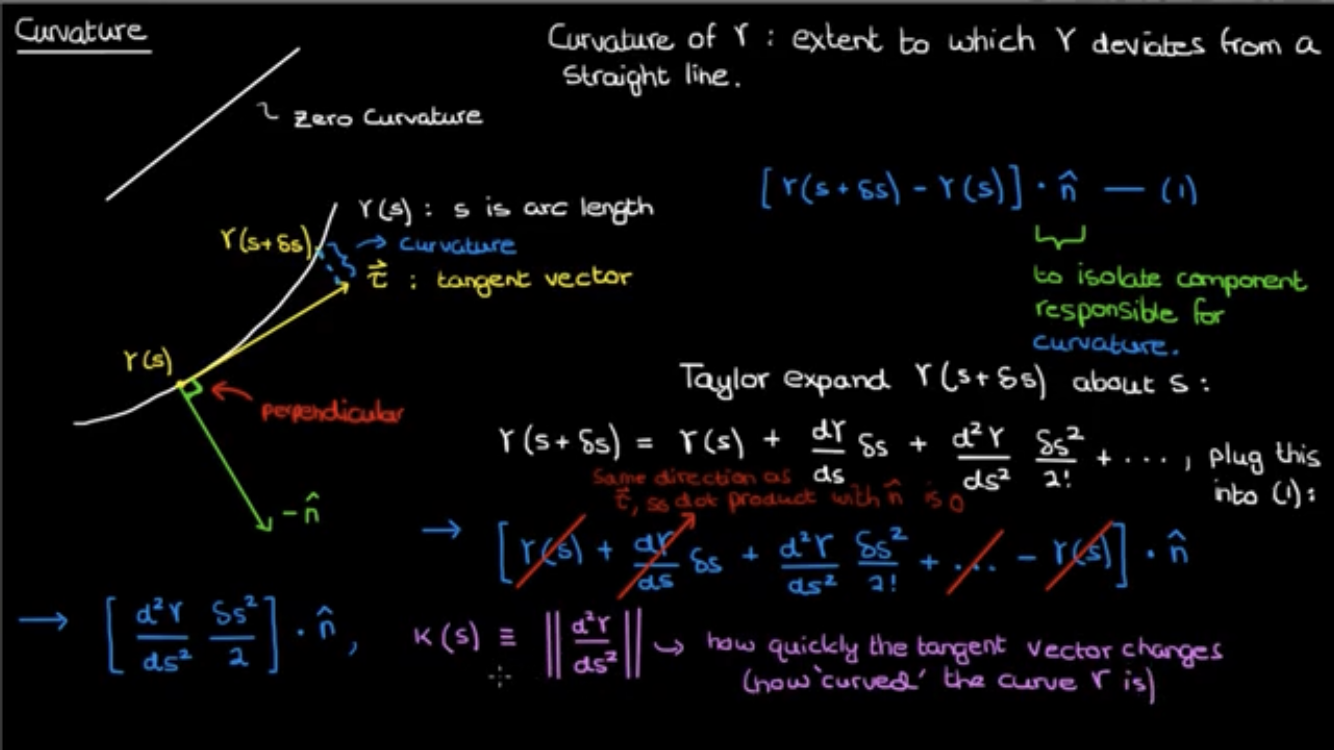 Curvature
Curvature of γ : extent to which γ deviates from a
straight line.
zero curvature
[γ(s + δs) - γ(s)] · n̂ — (1)
γ(s) : s is arc length
γ(s+δs)
→ curvature
t⃗ : tangent vector
to isolate component
responsible for
curvature.
γ(s)
perpendicular
Taylor expand γ(s+δs) about s :
γ(s+δs) = γ(s) + dγ/ds δs + d²γ/ds² δs²/2! + ··· , plug this
into (1) :
Same direction as
t⃗, so dot product with n̂ is 0
-n̂
→ [γ(s) + dγ/ds δs + d²γ/ds² δs²/2! + ... - γ(s)] · n̂
→ [d²γ/ds² δs²/2] · n̂ , κ(s) ≡ ||d²γ/ds²|| → how quickly the tangent vector changes
(how 'curved' the curve γ is)